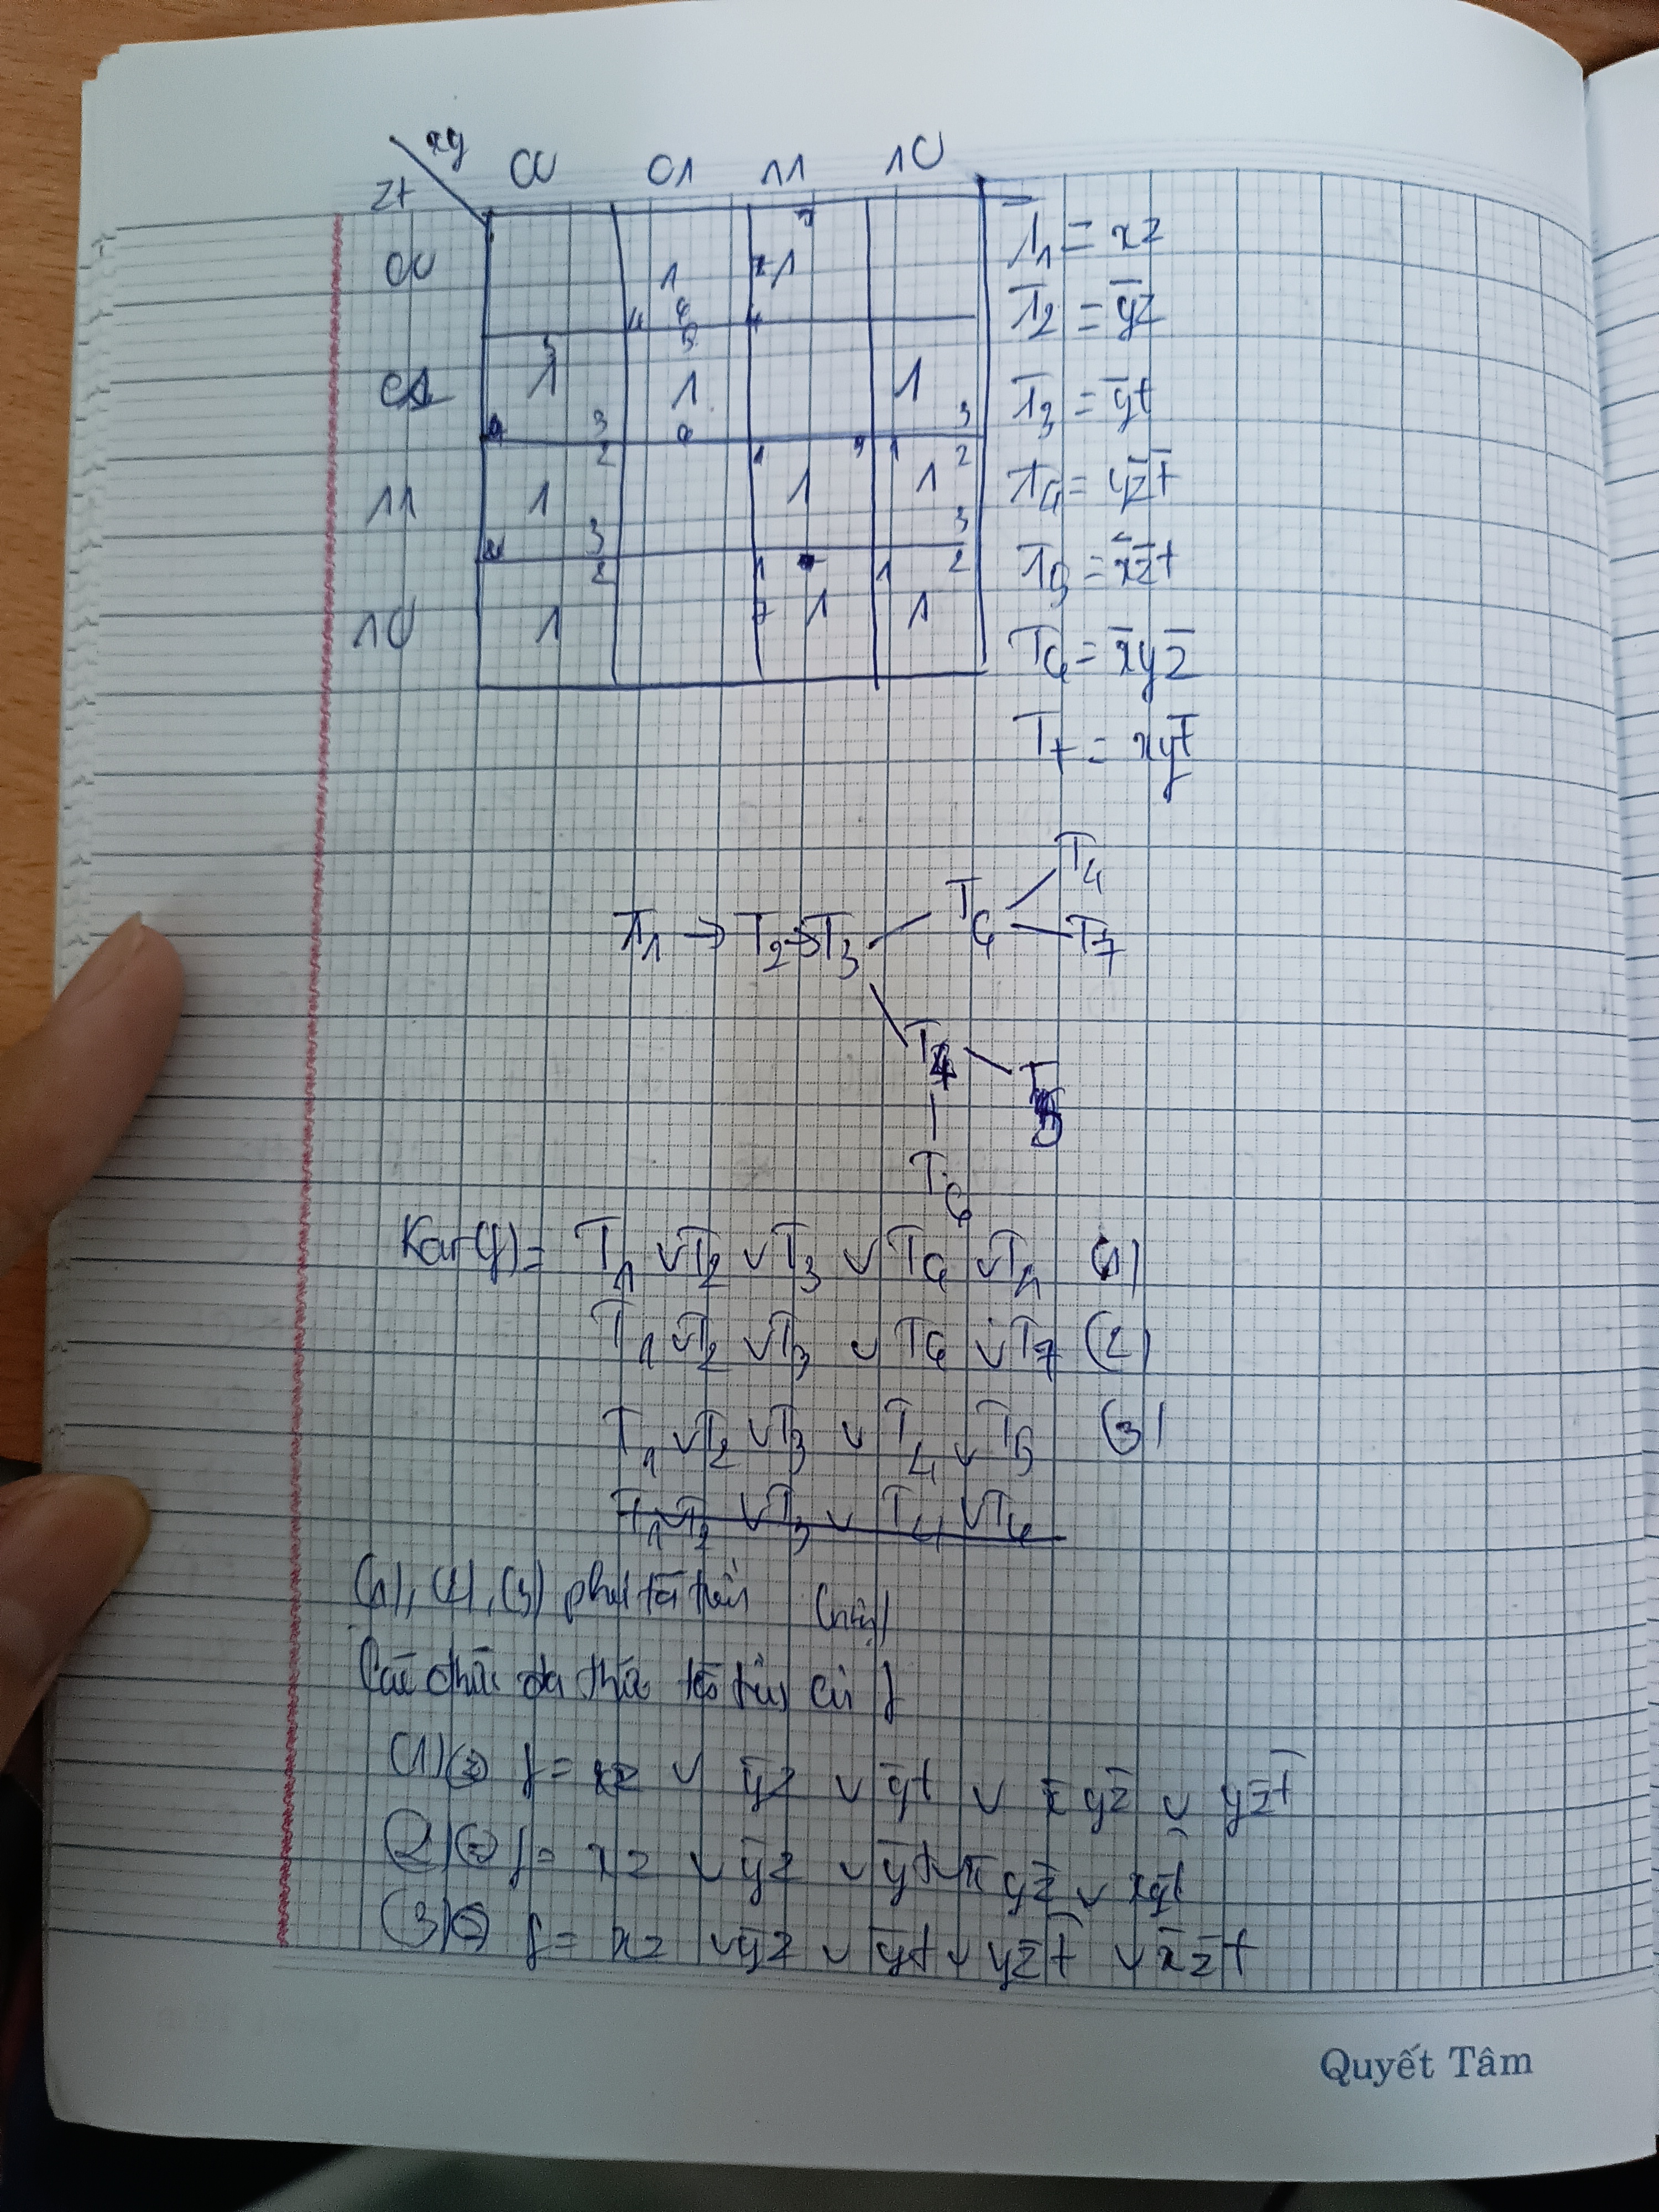 xy
zt
00 01 11 10
00 1 1
01 1 1 1
11 1 1 1
10 1 1 1
T1 = xz
T2 = y̅z
T3 = y̅t
T4 = yz̅t̅
T5 = x̅z̅t
T6 = x̅yz̅
T7 = xyt̅
T1 → T2 → T3
T6
T4
T7
T4
T5
T6
Kar(f) = T1 ∨ T2 ∨ T3 ∨ T6 ∨ T4 (1)
T1 ∨ T2 ∨ T3 ∨ T6 ∨ T7 (2)
T1 ∨ T2 ∨ T3 ∨ T4 ∨ T5 (3)
T1 ∨ T2 ∨ T3 ∨ T4 ∨ T6
(1), (2), (3) tối
thức tối f
(1) f = xz ∨ y̅z ∨ y̅t ∨ x̅yz̅ ∨ yz̅t̅
(2) f = xz ∨ y̅z ∨ y̅t ∨ x̅yz̅ ∨ xyt̅
(3) f = xz ∨ y̅z ∨ y̅t ∨ yz̅t̅ ∨ x̅z̅t
Quyết Tâm